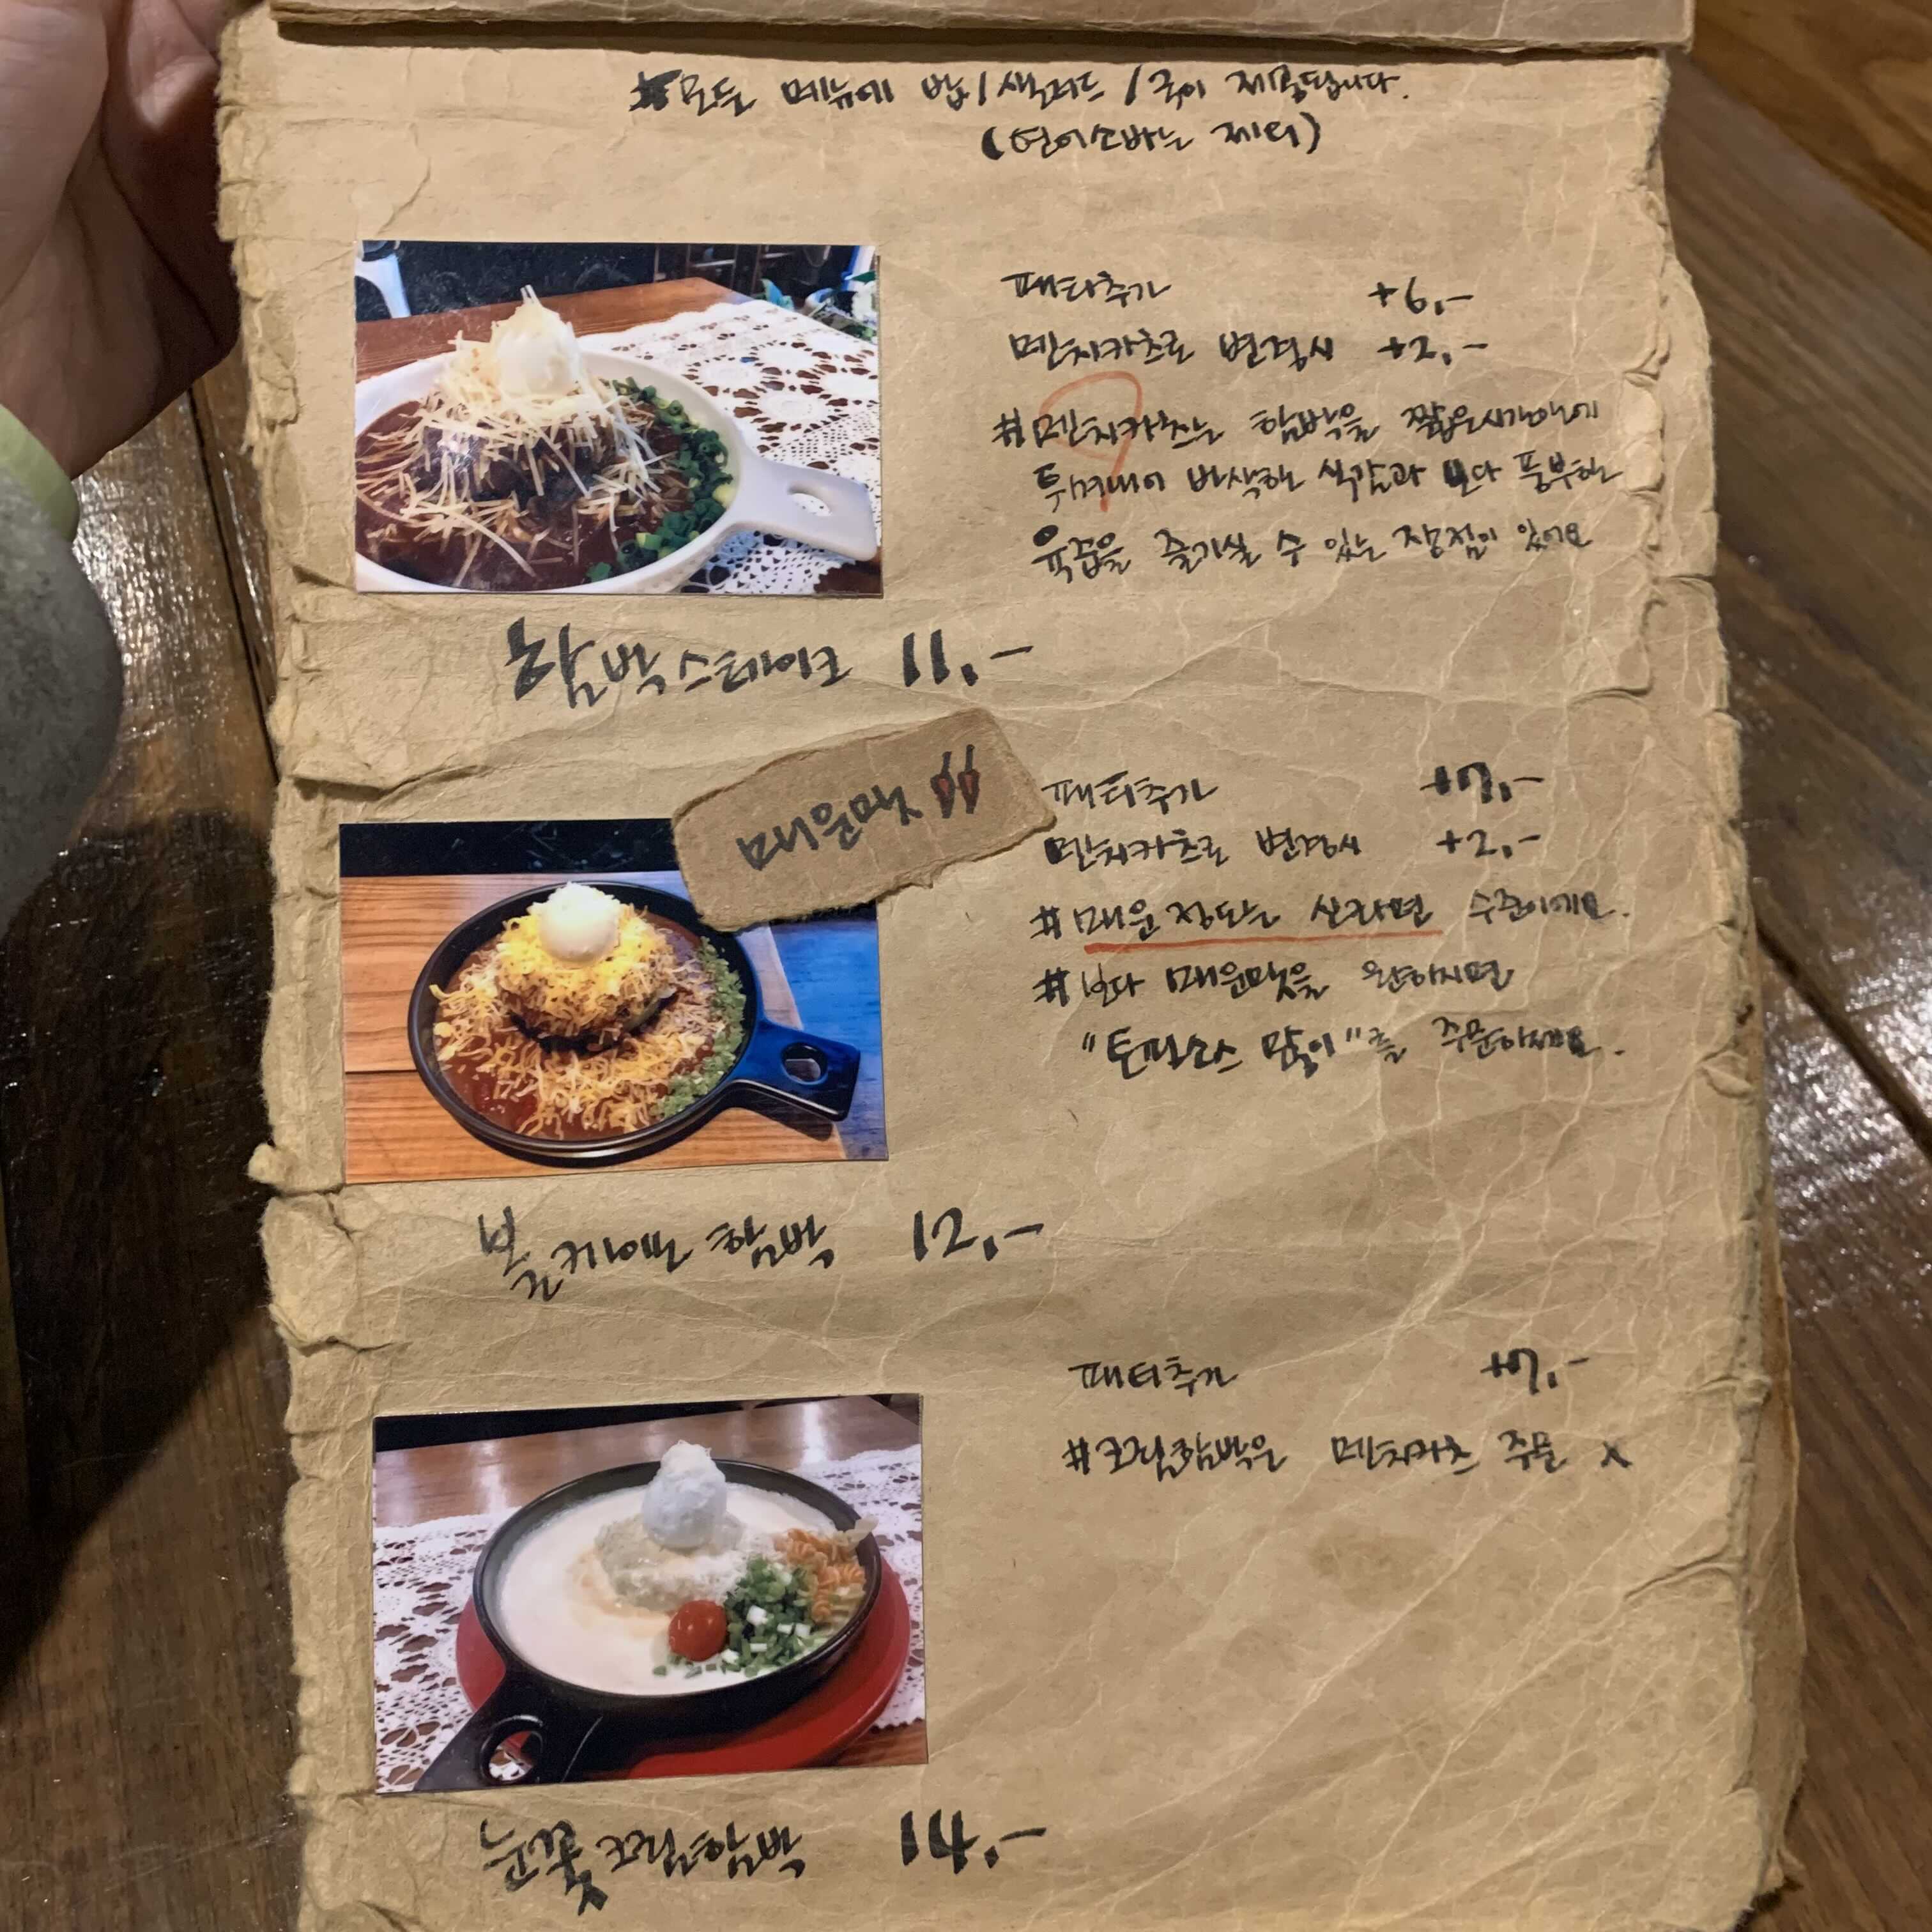 #모든 메뉴에 밥/샐러드/국이 제공됩니다.
(연어소바는 제외)
패티추가 +6,-
멘치카츠로 변경시 +2,-
#멘치카츠는 함박을 짧은시간안에
튀겨내어 바삭한 식감과 보다 풍부한
육즙을 즐기실 수 있는 장점이 있어요
함박스테이크 11,-
패티추가 +7,-
멘치카츠로 변경시 +2,-
#매운 정도는 신라면 수준이에요.
#보다 매운맛을 원하시면
"토핑소스 많이"를 주문하세요.
볼케이노 함박 12,-
패티추가 +7,-
#크림함박은 멘치카츠 주문 x
크림함박 14,-